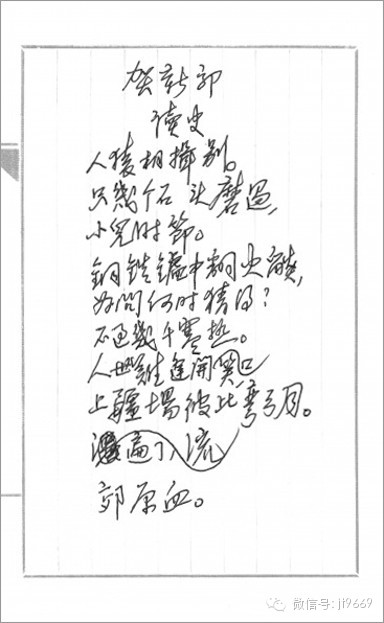 贺新郎
读史
人猿相揖别。
只幾个石头磨过,
小兒时節。
銅铁鑪中翻火焰,
为问何时猜得?
不过幾千寒热。
人世難逢開笑口
上疆場彼此彎弓月。
遍了,流
郊原血。
微信号: jt9669